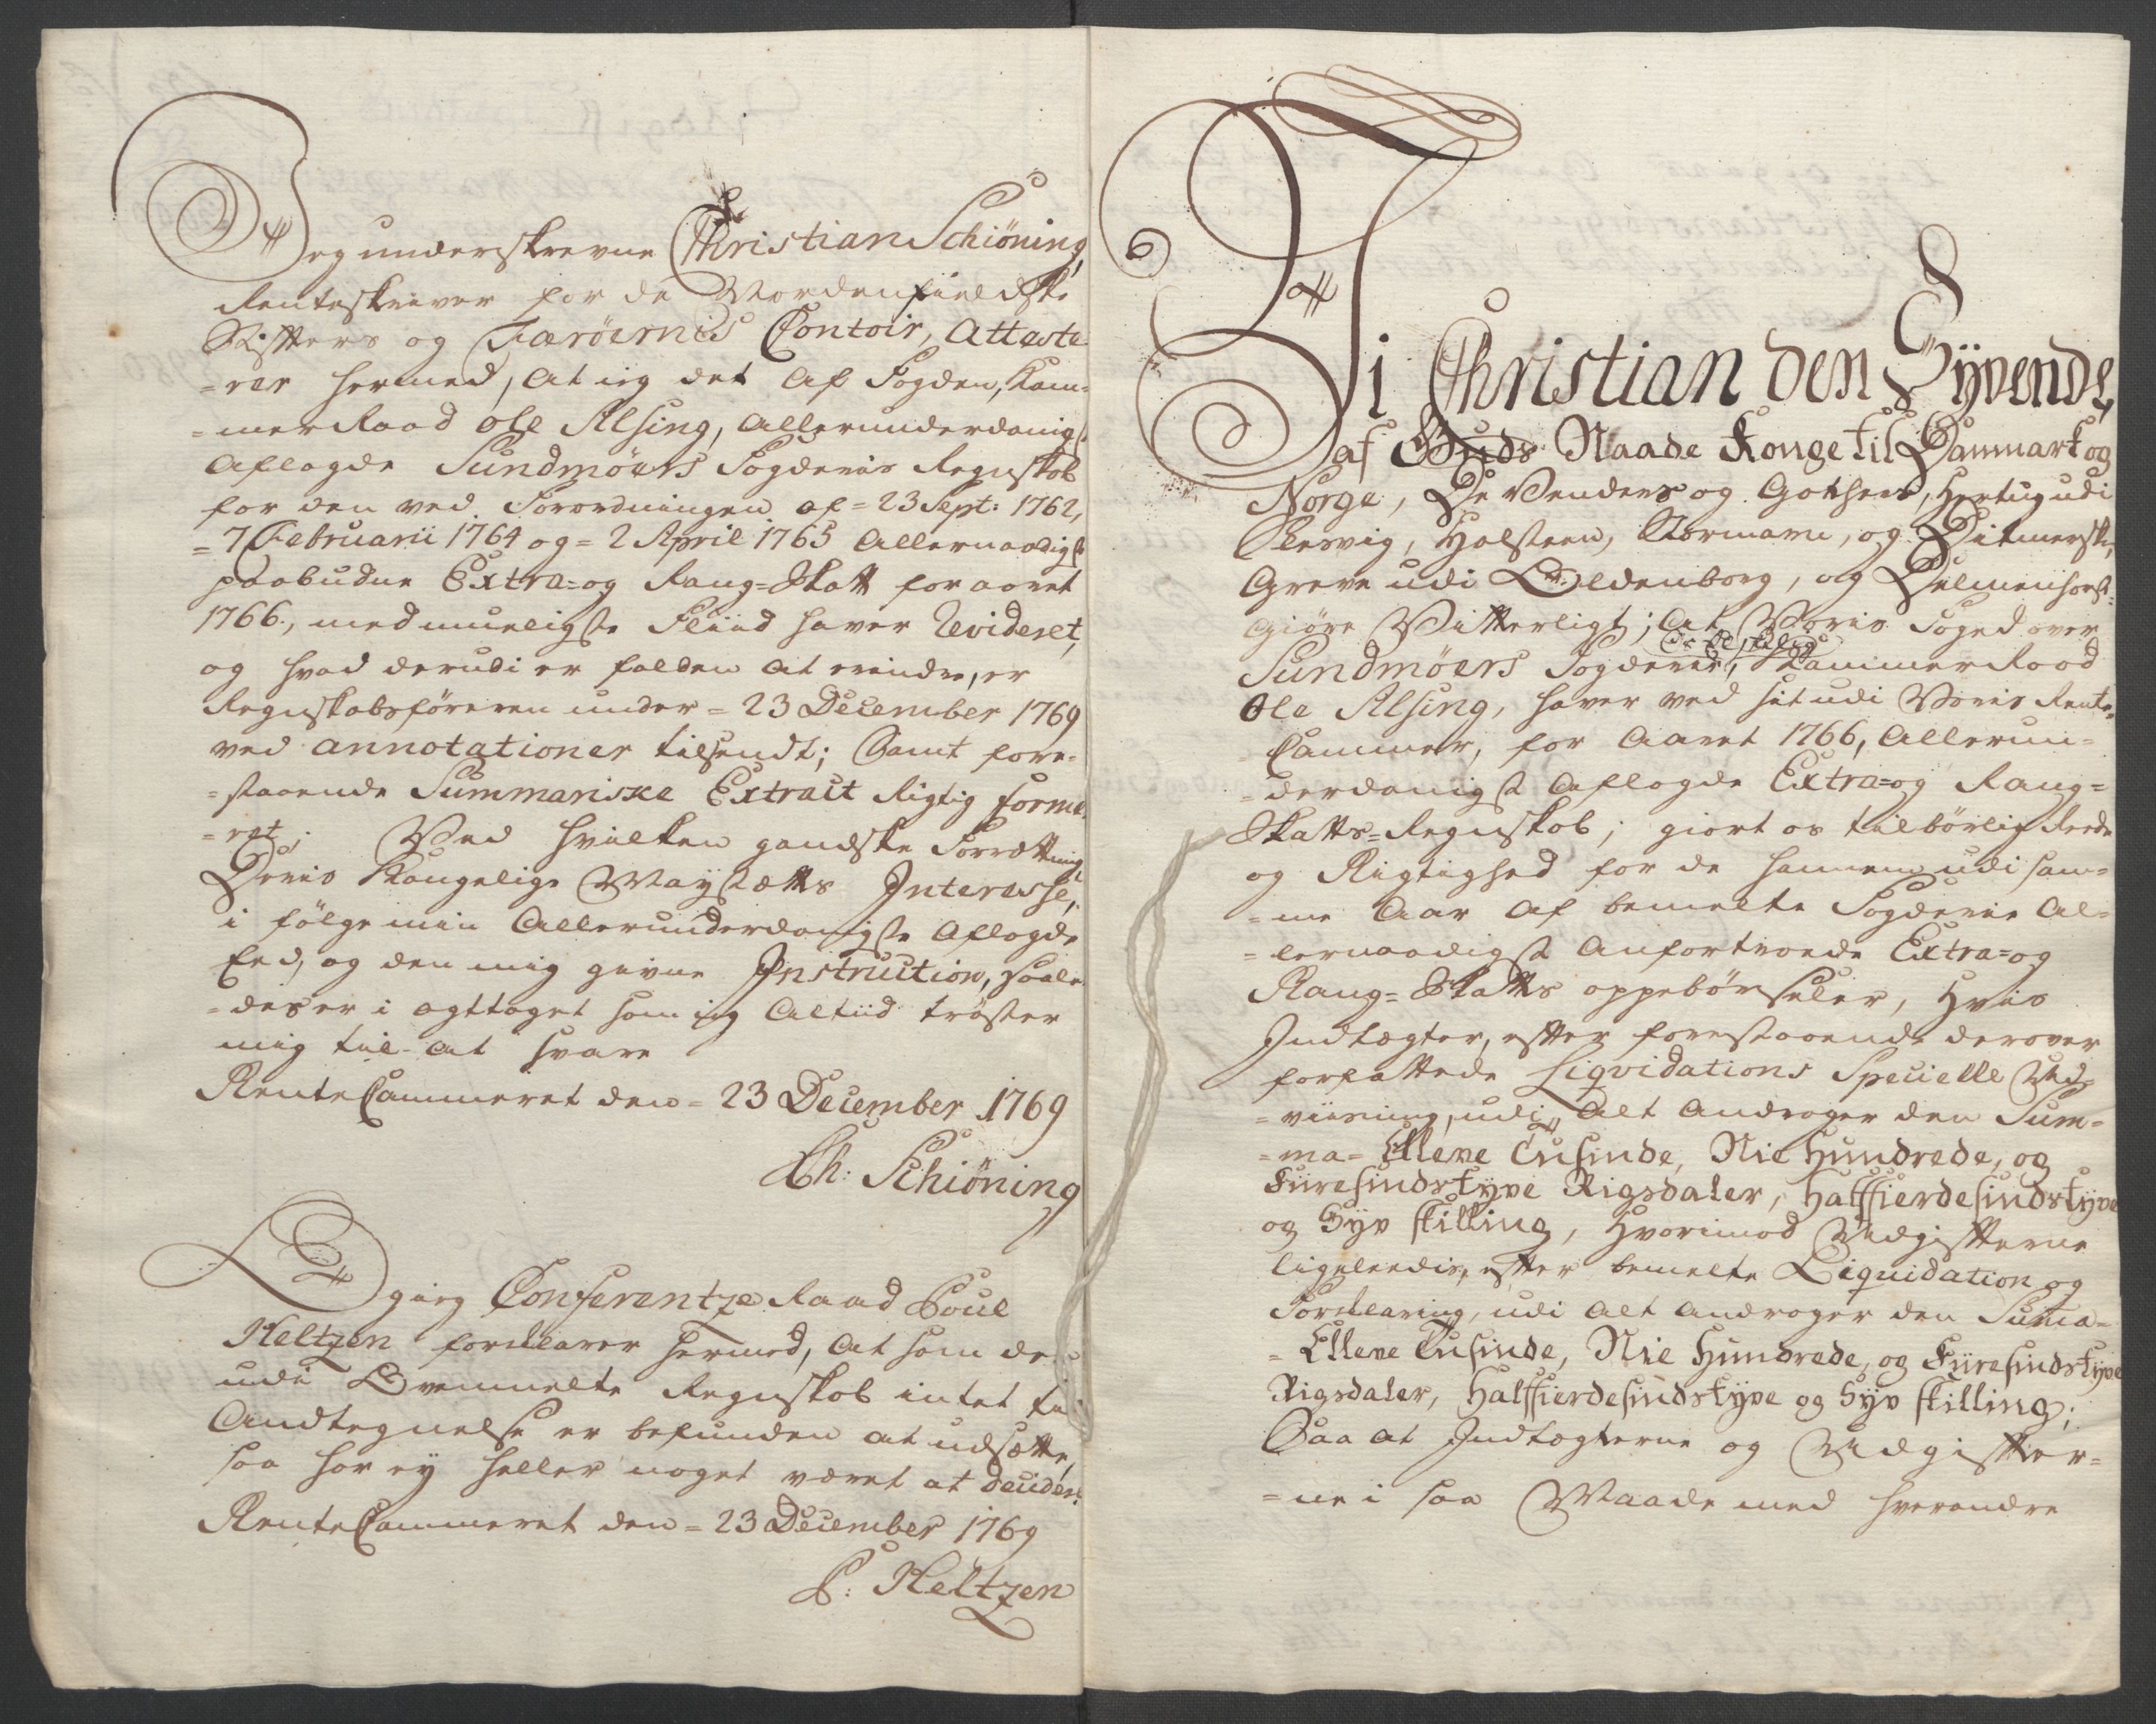 Jeg underskrevne Christian Schiöning,
Renteskriver for de Nordenfieldske
Stifters og Færöernes Contoir, Atteste-
=rer hermed, at jeg det af Fogden, Kam-
=merRaad Ole Alsing, allerunderdanigst
aflagde Sundmöers Fogderies Regnskab
for den ved Forordningen af = 23 Sept: 1762,
= 7 Februarii 1764 og = 2 April 1765 allernaadigst
paabudne Extra= og Rang=Skatt for aaret
1766., med mueligste Fliid haver Revideret,
og hvad derudi er falden at erindre, er
Regnskabsföreren under = 23 December 1769
ved annotationer tilsendt; Samt fore-
=staaende Summariske Extract Rigtig forme-
=ret; Ved hvilken gandske Forrættning
Deris Kongelige Mayestætts Interesse,
i fölge min Allerunderdanigste aflagde
Eed, og den mig givne Instruction, saale-
=des er i agttaget som jeg altiid tröster
mig til at svare
RenteCammeret den = 23 December 1769
Ch: Schiöning
Og jeg ConferentzeRaad Poul
Heltzen forklarer hermed, at som der
udi Ovenmelte Regnskab intet til
Andtegnelse er befunden at udsætte,
saa har ey heller noget været at decidere.
RenteCammeret den = 23 December 1769
P: Heltzen
Vi Christian den Syvende,
af Guds Naade Konge til Danmark og
Norge, De Venders og Gothers, Hertug udi
Slesvig, Holsteen, Stormarn, og Ditmersken,
Greve udi Oldenborg, og Delmenhorst
Giöre Vitterligt; At Voris Foged over
Sundmöers Fogderie, KammerRaad
Ole Alsing, haver ved sit udi Voris Rente-
Cammer, for Aaret 1766, allerun-
=derdanigst aflagde Extra= og Rang=
Skatts=Regnskab; giort os tilbörlig Reede
og Rigtighed for de hannem udi sam-
=me Aar af bemelte Fogderie Al-
=lernaadigst anfortroede Extra= og
Rang= Skatts oppebörseler, Hvis
Indtægter, efter forestaaende derover
forfattede Liqvidations Specielle Ud-
=viisning, udi alt andrager den Sum-
=ma= Elleve Tusinde, Nie Hundrede, og
Fiiresindstyve Rigsdaler, Halffierdesindstyve
og Syv skilling, Hvorimod Udgifterne
ligeleedis, efter bemelte Liquidation og
Forklaring, udi alt andrager den Suma=
= Elleve Tusinde, Nie Hundrede, og Fiiresindstyve
Rigsdaler, Halffierdesindstyve og Syv skilling;
Saa at Indtægterne og Udgifter-
=ne i saa Maade med hverandre